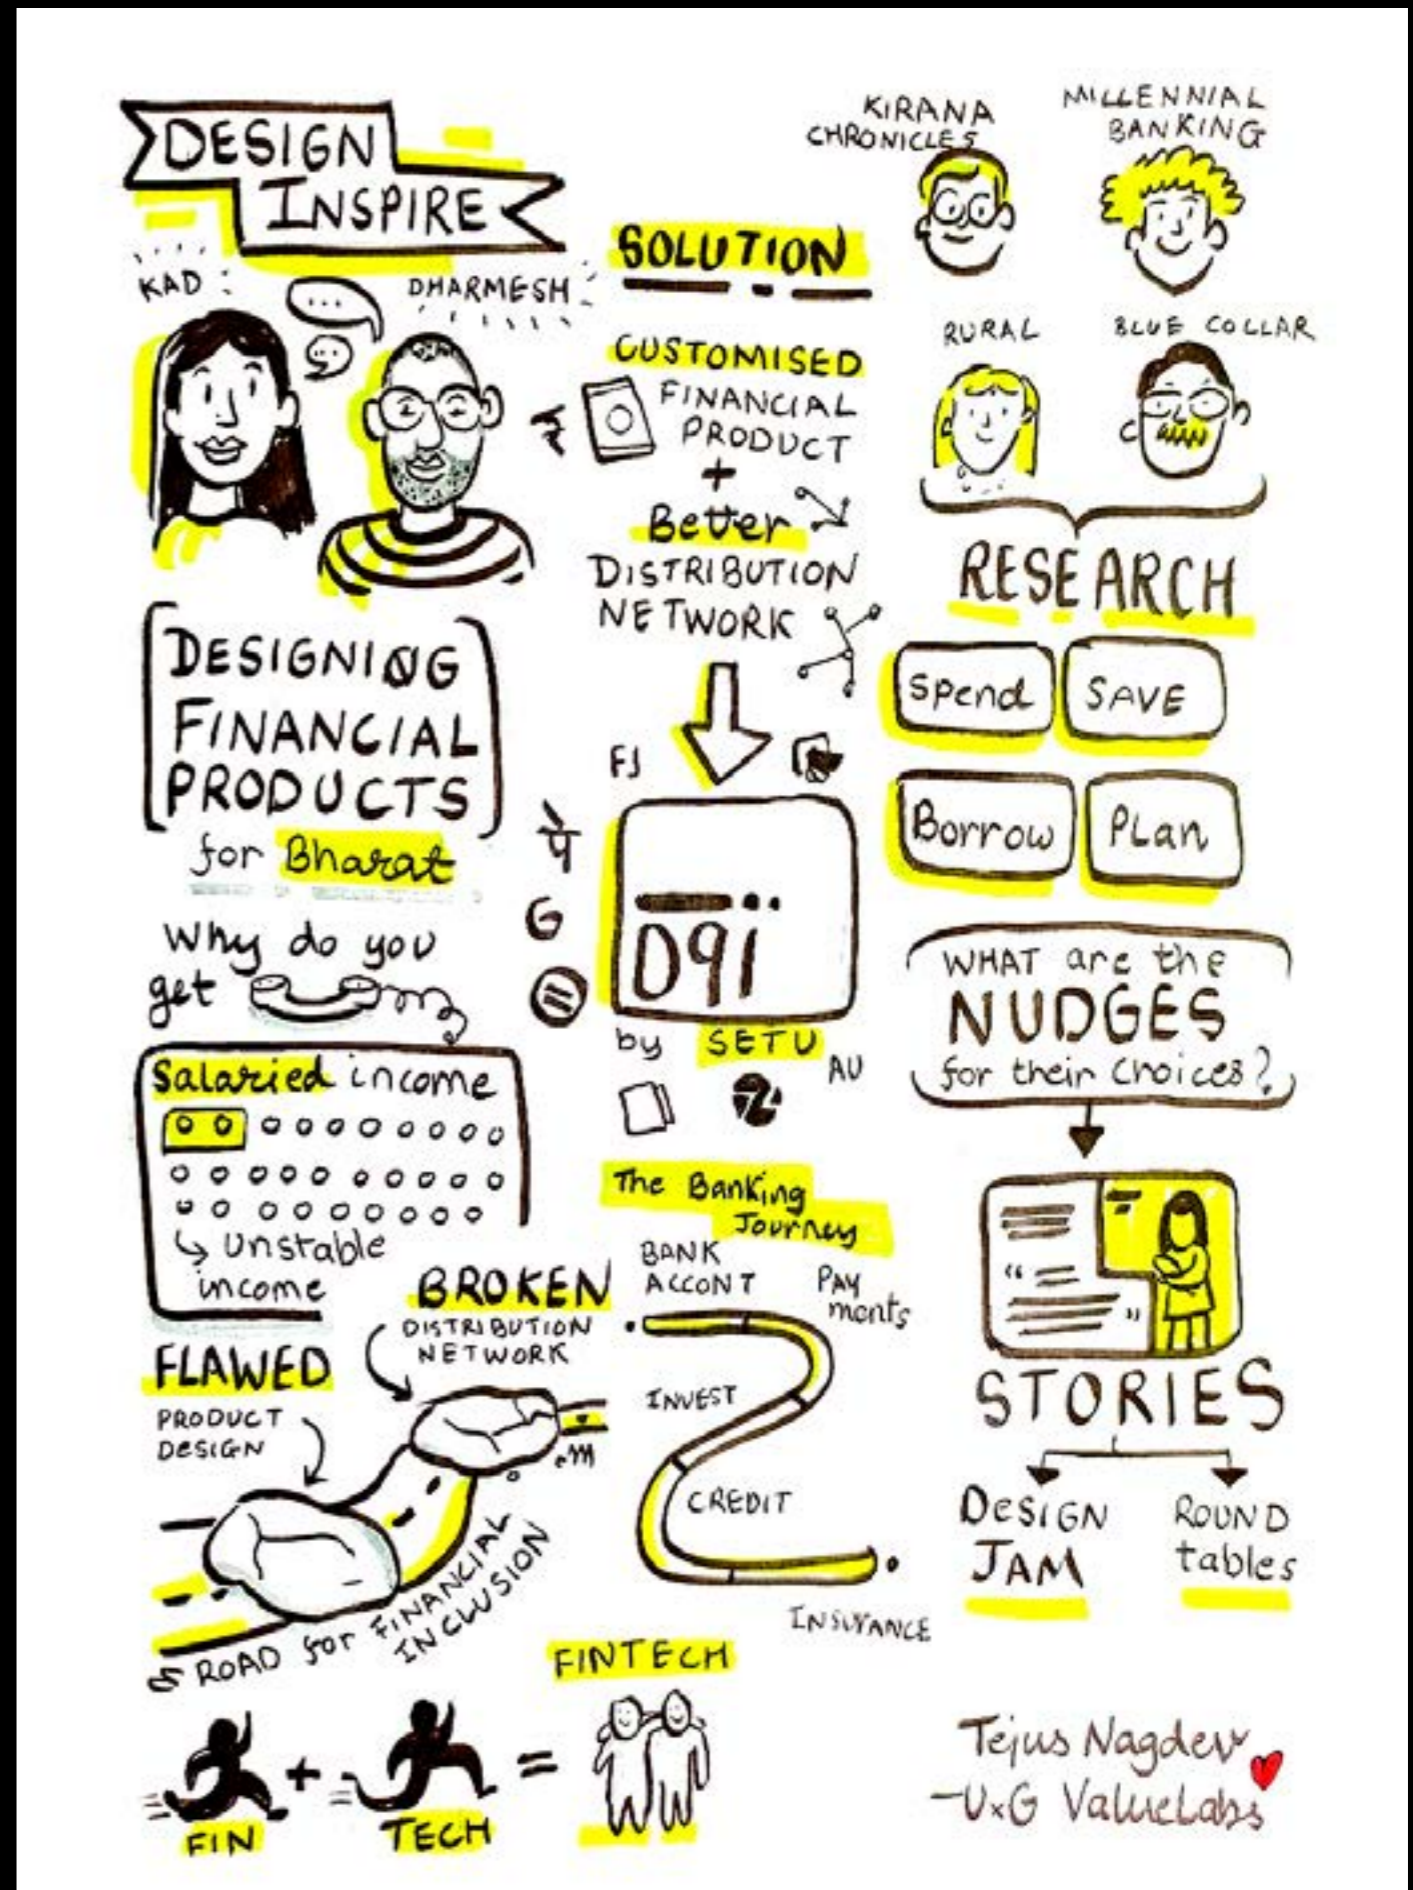 DESIGN
INSPIRE
KAD
DHARMESH
DESIGNING
FINANCIAL
PRODUCTS
for Bharat
Why do you
get
Salaried income
Unstable
income
BROKEN
DISTRIBUTION
NETWORK
FLAWED
PRODUCT
DESIGN
ROAD for FINANCIAL
INCLUSION
FIN
+
TECH
=
FINTECH
SOLUTION
CUSTOMISED
₹
FINANCIAL
PRODUCT
+
Better
DISTRIBUTION
NETWORK
पे
G
D91
by SETU
AU
The Banking
Journey
BANK
ACCONT
PAY
ments
INVEST
CREDIT
INSURANCE
KIRANA
CHRONICLES
MILLENNIAL
BANKING
RURAL
BLUE COLLAR
RESEARCH
Spend
SAVE
Borrow
PLan
WHAT are the
NUDGES
for their choices?
“
”
STORIES
DESIGN
JAM
ROUND
tables
Tejus Nagdev
-UxG ValueLabs